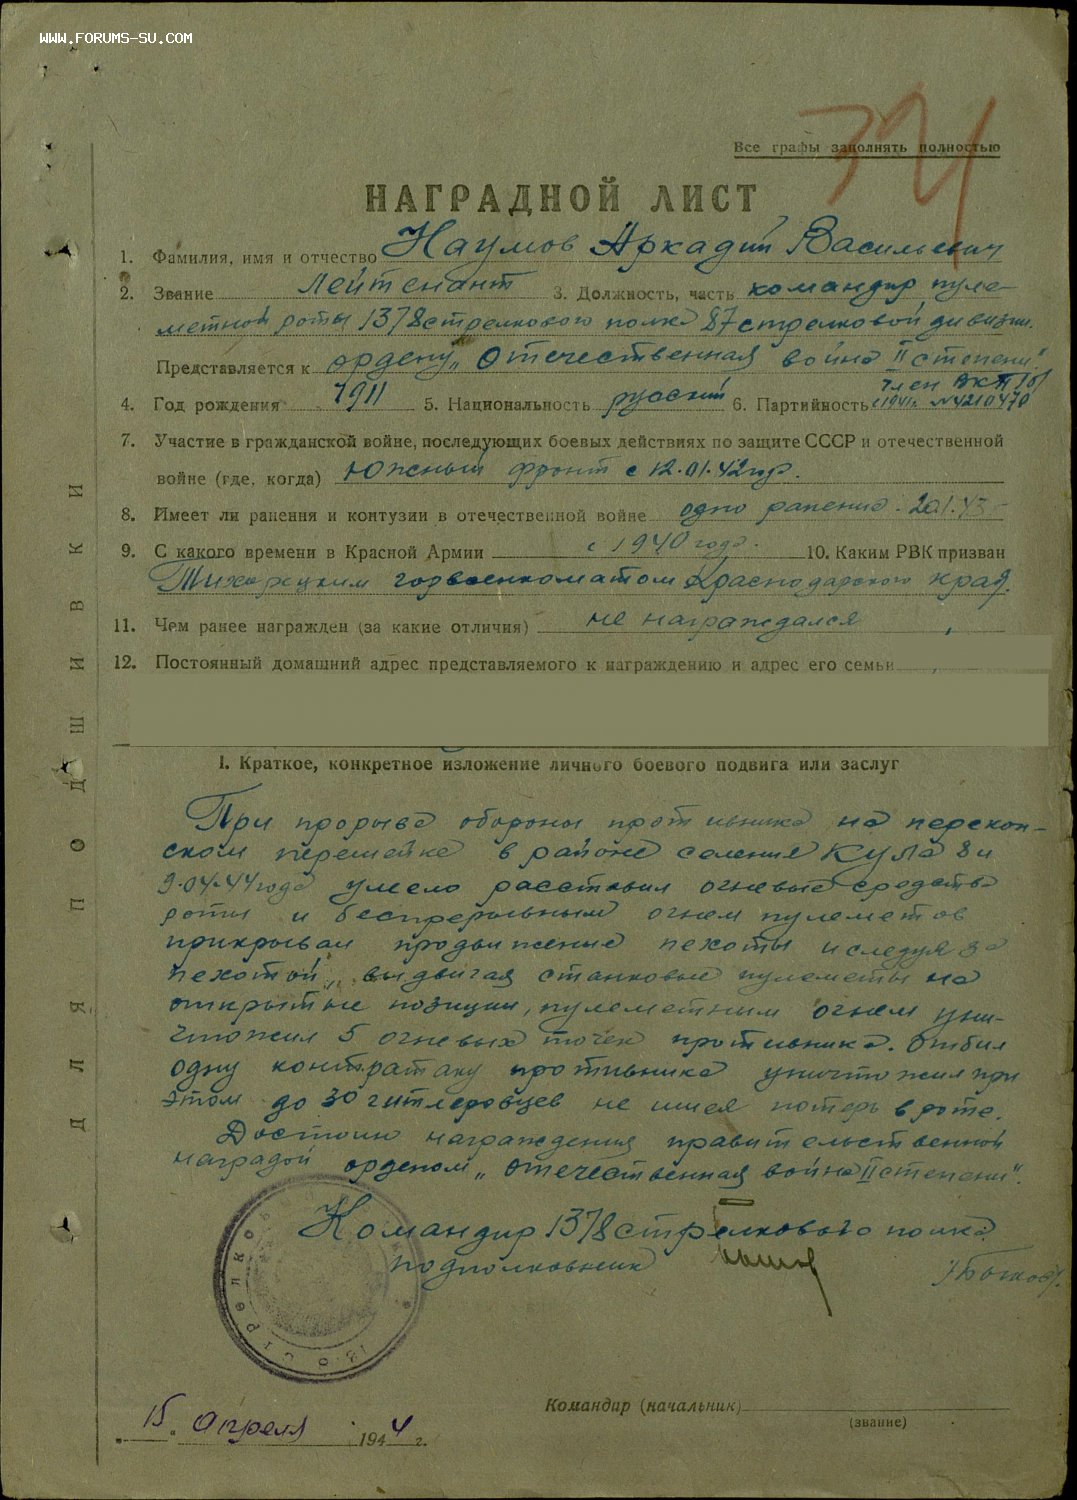 WWW.FORUMS-SU.COM
Все графы заполнять полностью
НАГРАДНОЙ ЛИСТ
1. Фамилия, имя и отчество Наумов Аркадий Васильевич
2. Звание Лейтенант 3. Должность, часть командир пуле-
метной роты 1378 стрелкового полка 87 стрелковой дивизии.
Представляется к ордену „Отечественная война II степени"
член ВКП(б)
4. Год рождения 1911 5. Национальность русский 6. Партийность с 1941г. №4210470
7. Участие в гражданской войне, последующих боевых действиях по защите СССР и отечественной
войне (где, когда) Южный фронт с 12.01.42 года.
8. Имеет ли ранения и контузии в отечественной войне одно ранение
9. С какого времени в Красной Армии с 1940 года. 10. Каким РВК призван
Тихорецким горвоенкоматом Краснодарского края.
11. Чем ранее награжден (за какие отличия) не награждался
12. Постоянный домашний адрес представляемого к награждению и адрес его семьи
I. Краткое, конкретное изложение личного боевого подвига или заслуг
При прорыве обороны противника на перекоп-
ском перешейке в районе селения КУЛА 8 и
9.04.44 года умело расставил огневые средства
роты и беспрерывным огнем пулеметов
прикрывал продвижение пехоты и следуя за
пехотой, выдвигая станковые пулеметы на
открытые позиции, пулеметным огнем уни-
чтожил 5 огневых точек противника. Отбил
одну контратаку противника уничтожил при
этом до 30 гитлеровцев не имея потерь в роте.
Достоин награждения правительственной
наградой орденом „Отечественная война II степени".
Командир 1378 стрелкового полка
подполковник /Бытков/.
Командир (начальник)
(звание)
15. Апреля 1944 г.
ДЛЯ ПОДШИВКИ